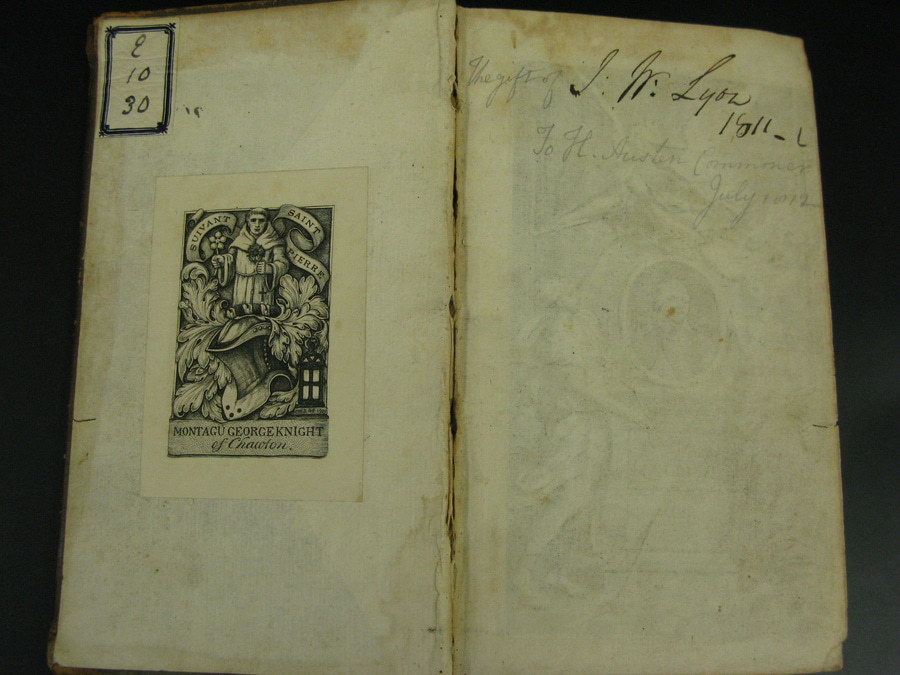 E
10
30
SUIVANT SAINT PIERRE
MONTAGU GEORGE KNIGHT
of Chawton.
The gift of J: W: Lyon
1811
To H. Austen Commoner
July